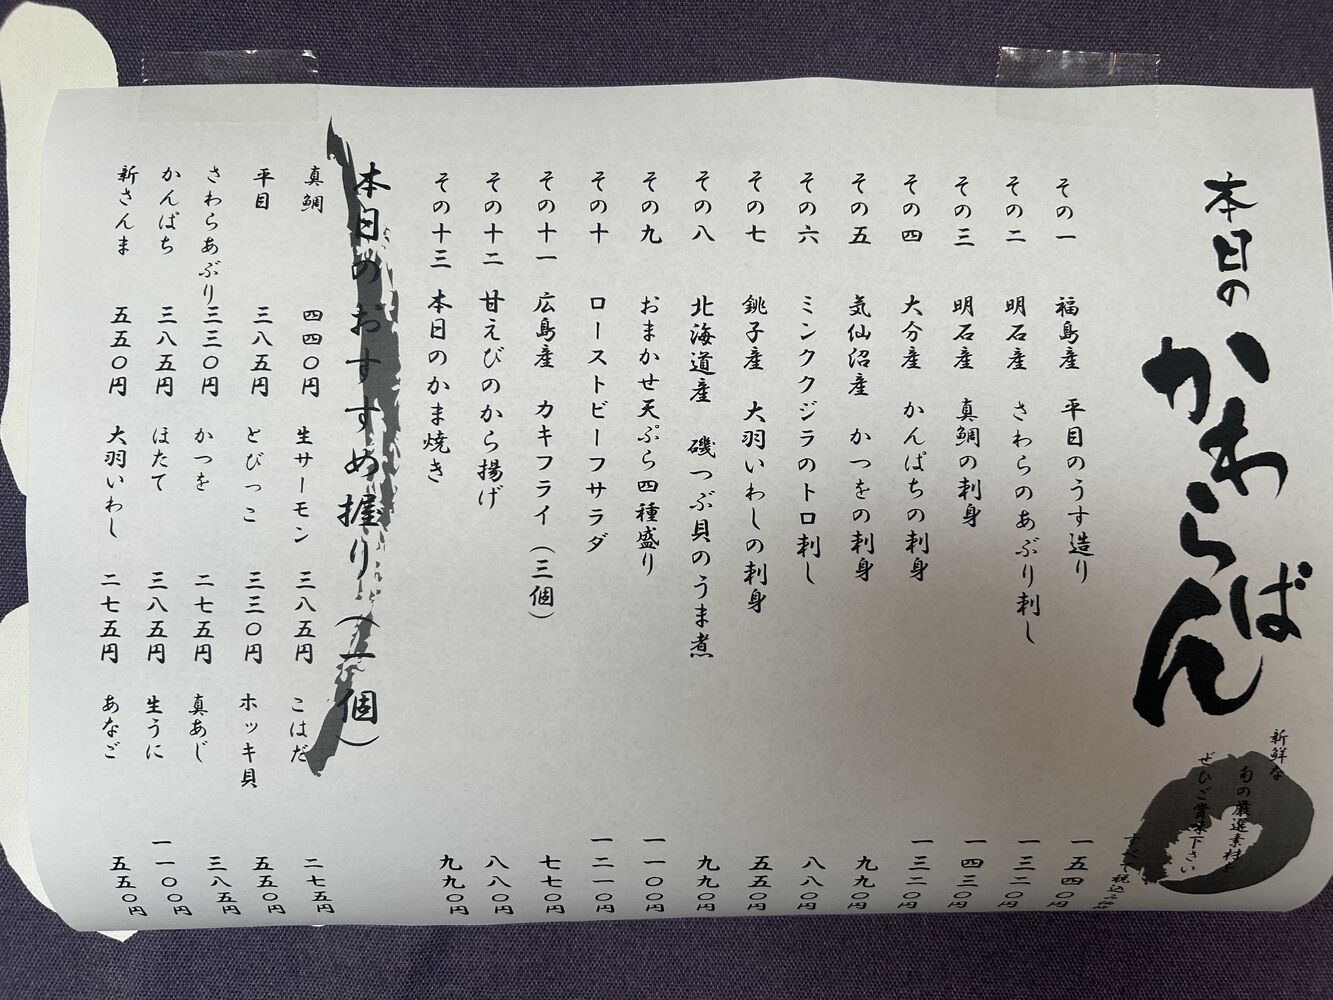 本日の かわらばん
新鮮な
旬の厳選素材を
ぜひご賞味下さい
すべて税込み価格
その一 福島産 平目のうす造り 一五四〇円
その二 明石産 さわらのあぶり刺し 一三二〇円
その三 明石産 真鯛の刺身 一四三〇円
その四 大分産 かんぱちの刺身 一三二〇円
その五 気仙沼産 かつをの刺身 九九〇円
その六 ミンククジラのトロ刺し 八八〇円
その七 銚子産 大羽いわしの刺身 五五〇円
その八 北海道産 磯つぶ貝のうま煮 九九〇円
その九 おまかせ天ぷら四種盛り 一一〇〇円
その十 ローストビーフサラダ 一二一〇円
その十一 広島産 カキフライ(三個) 七七〇円
その十二 甘えびのから揚げ 八八〇円
その十三 本日のかま焼き 九九〇円
本日のおすすめ握り(一個)
真鯛 四四〇円 生サーモン 三八五円 こはだ 二七五円
平目 三八五円 とびっこ 三三〇円 ホッキ貝 五五〇円
さわらあぶり 三三〇円 かつを 二七五円 真あじ 三八五円
かんぱち 三八五円 ほたて 三八五円 生うに 一一〇〇円
新さんま 五五〇円 大羽いわし 二七五円 あなご 五五〇円